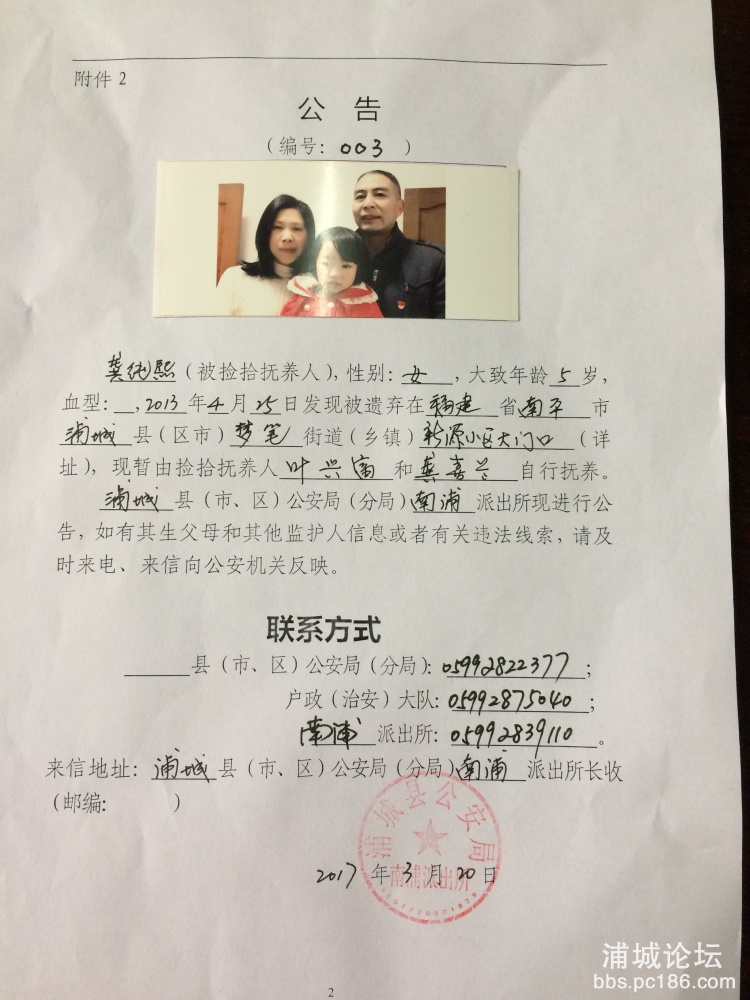 附件 2
公 告
（编号：003 ）
龚纯熙（被捡拾抚养人），性别：女，大致年龄 5 岁，
血型： ，2013 年 4 月 25 日发现被遗弃在福建省南平市
浦城县（区市）梦笔街道（乡镇）新源小区大门口（详
址），现暂由捡拾抚养人叶兴富和龚喜兰自行抚养。
浦城县（市、区）公安局（分局）南浦派出所现进行公
告，如有其生父母和其他监护人信息或者有关违法线索，请及
时来电、来信向公安机关反映。
联系方式
县（市、区）公安局（分局）：05992822377；
户政（治安）大队：05992875040；
南浦派出所：05992839110。
来信地址：浦城县（市、区）公安局（分局）南浦派出所长收
（邮编： ）
浦城县公安局
南浦派出所
2017 年 3 月 20 日
2
浦城论坛
bbs.pc186.com